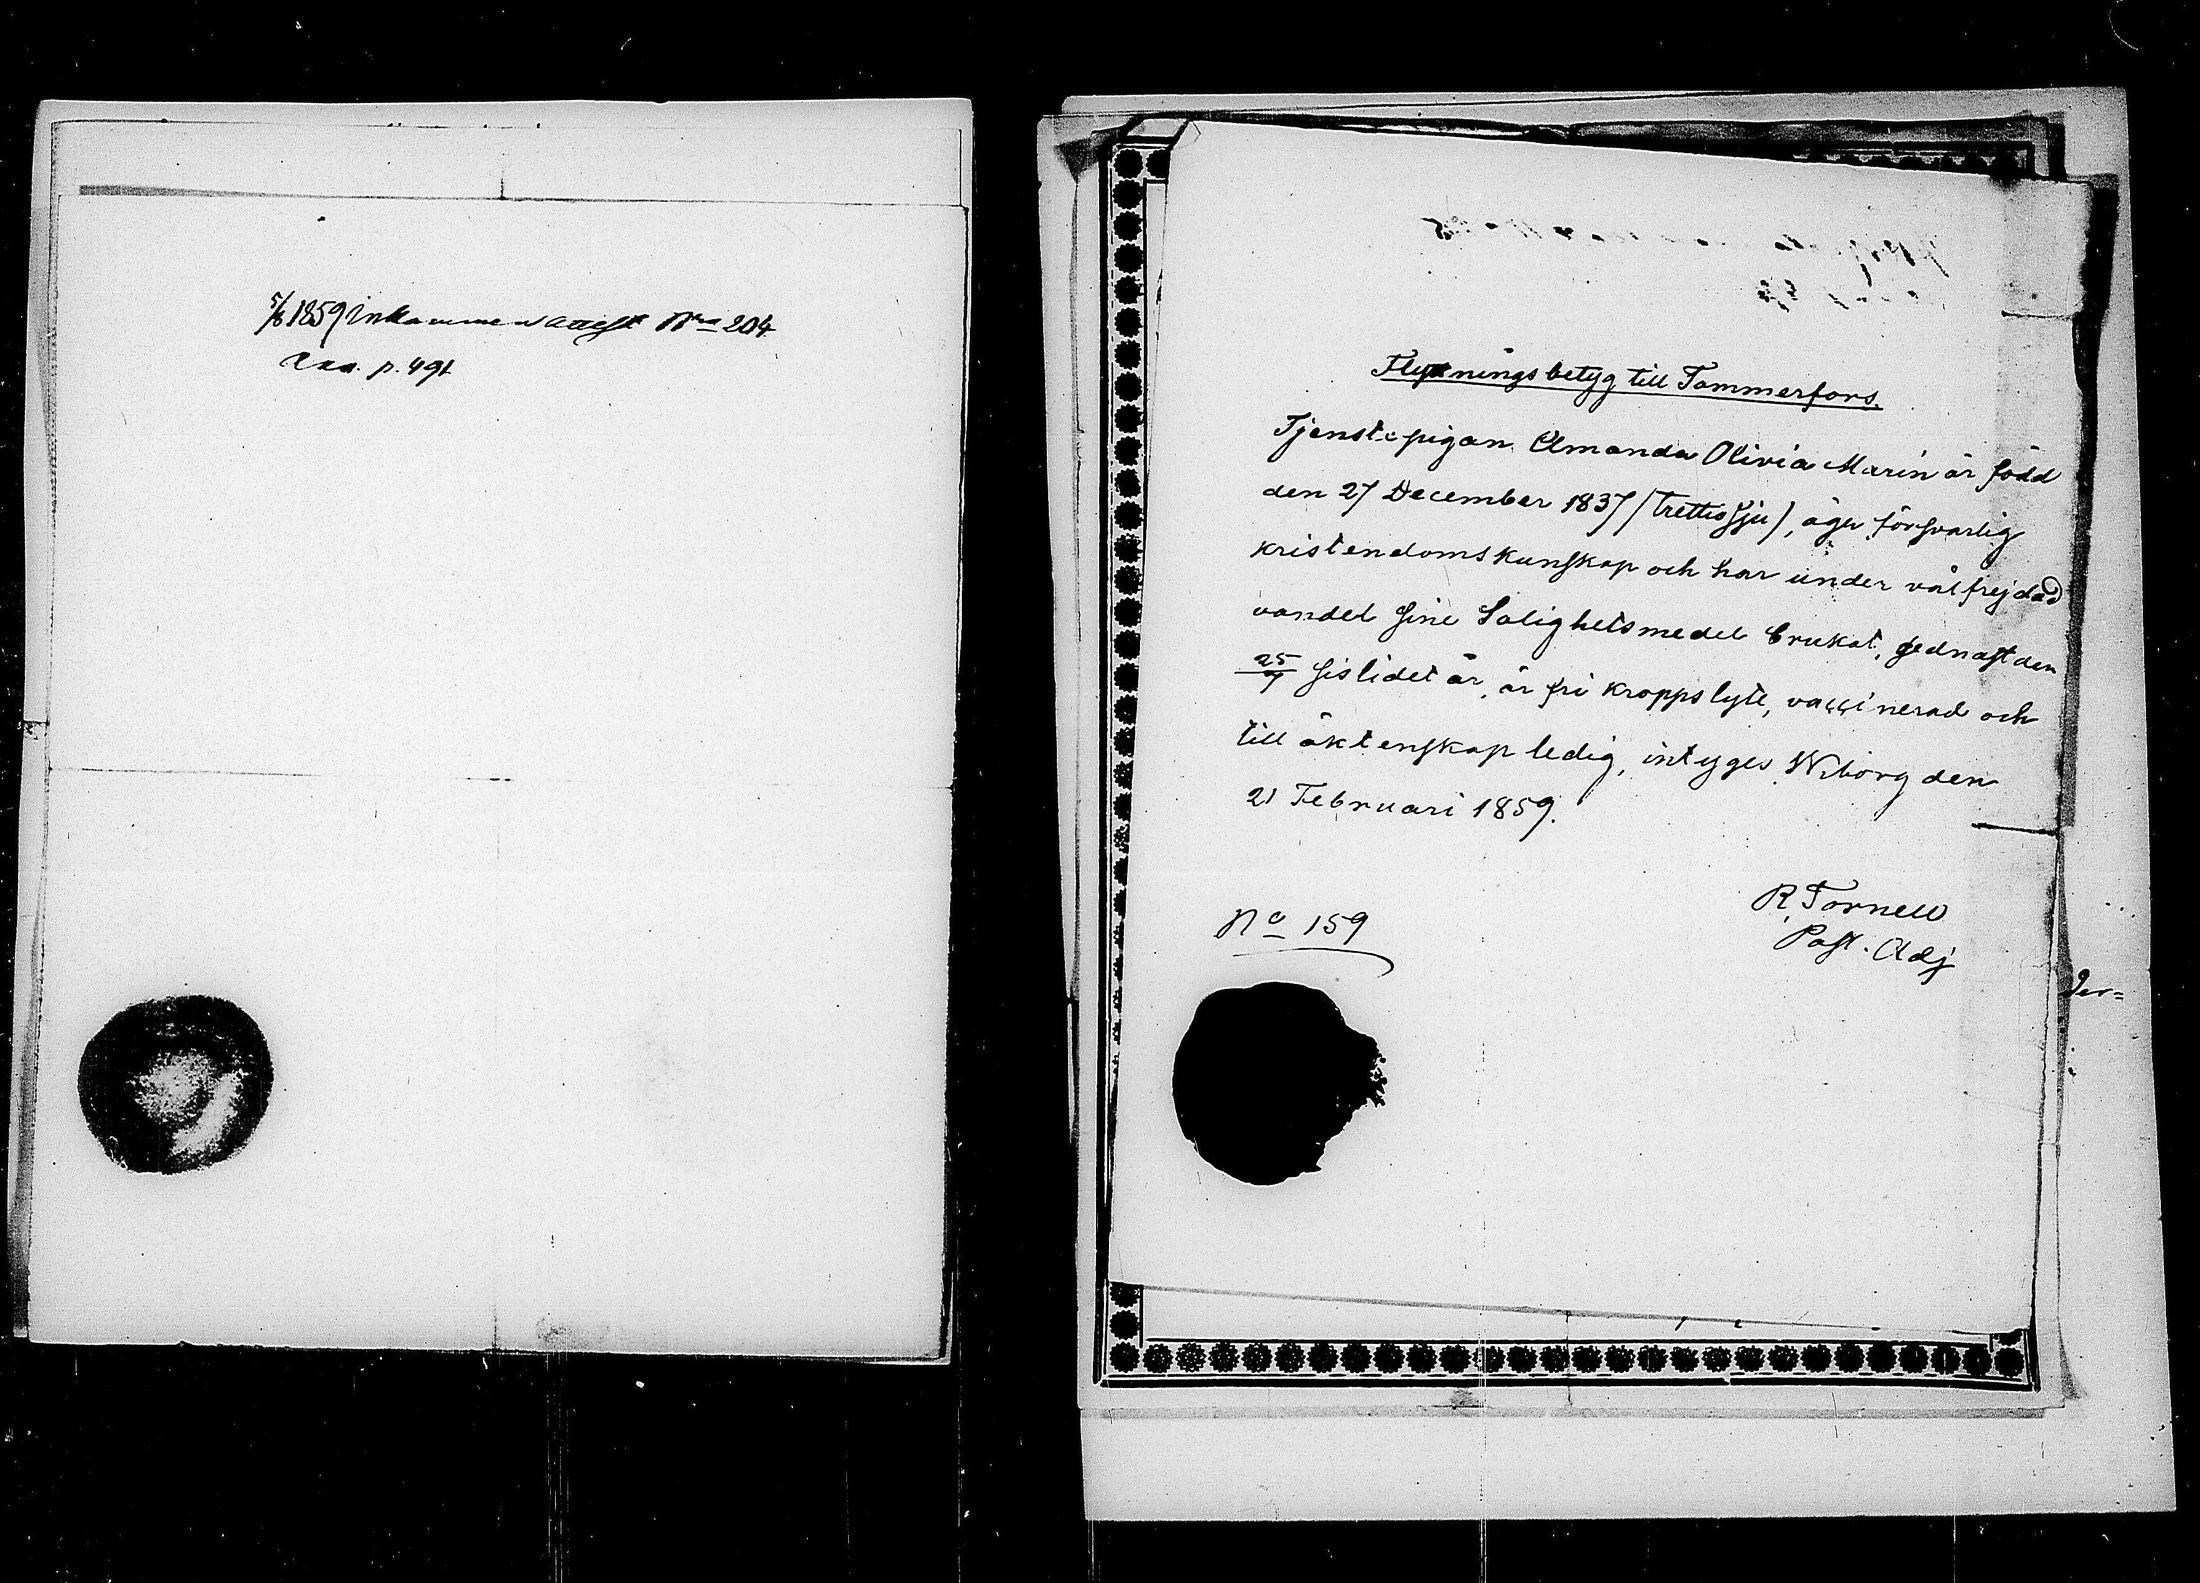 5/6 1859 inkommen attest Nro 204
p. 491
Flyttningsbetyg till Tammerfors.
Tjenstepigan Amanda Olivia Marin är född
den 27 December 1837 /trettiosju/, äger försvarlig
kristendomskunskap och har under välfrejdad
vandel sine Salighetsmedel brukat, sednast den
25/7 sislidet år, är fri kroppslyte, vaccinerad och
till äktenskap ledig, intyges Wiborg den
21 Februari 1859.
R. Tornell
Past. Adj
No 159